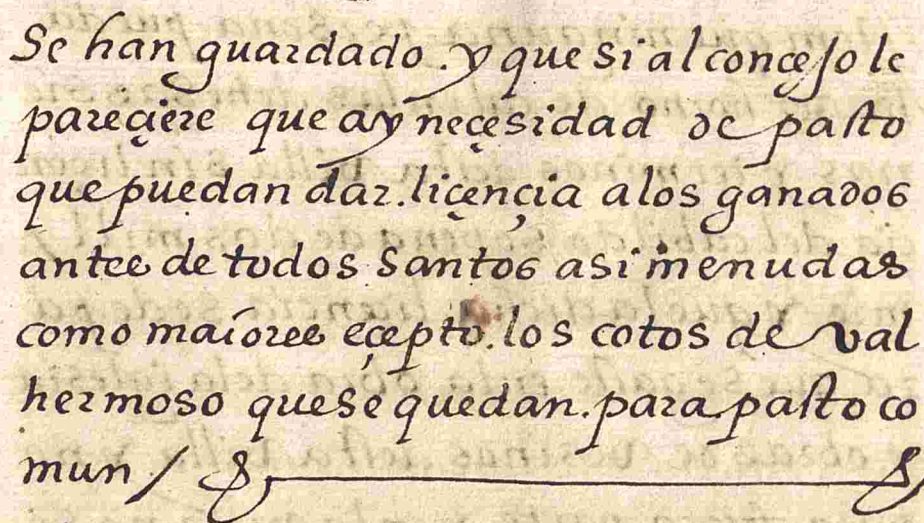 Se han guardado. y que si al conçejo le
pareçiere que ay neçesidad de pasto
que puedan dar. liçençia a los ganados
antes de todos Santos asi menudas
como maíores eçepto. los cotos de val
hermoso que se quedan. para pasto co
mun /